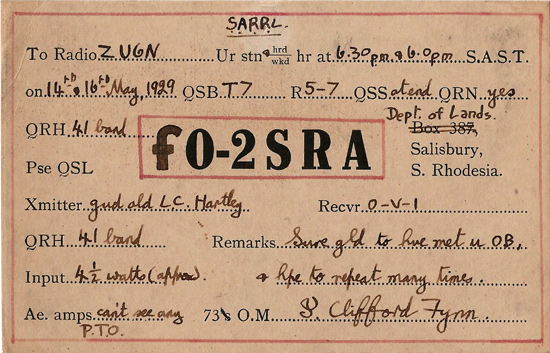 SARRL.
To Radio ZU6N Ur stn & hrd/wkd hr at 6.30pm & 6.0pm S.A.S.T.
on 14th & 16th May, 1929 QSB T7 R 5-7 QSS at end QRN yes
Dept. of Lands.
QRH 41 band
Box 387,
fO-2SRA
Salisbury,
Pse QSL
S. Rhodesia.
Xmitter gud old L.C. Hartley Recvr. O-V-1
QRH. 41 band Remarks Sure gld to hve met u OB,
Input 4½ watts (approx). & hpe to repeat many times.
Ae. amps can't see any 73's O.M Clifford Fynn.
P.T.O.